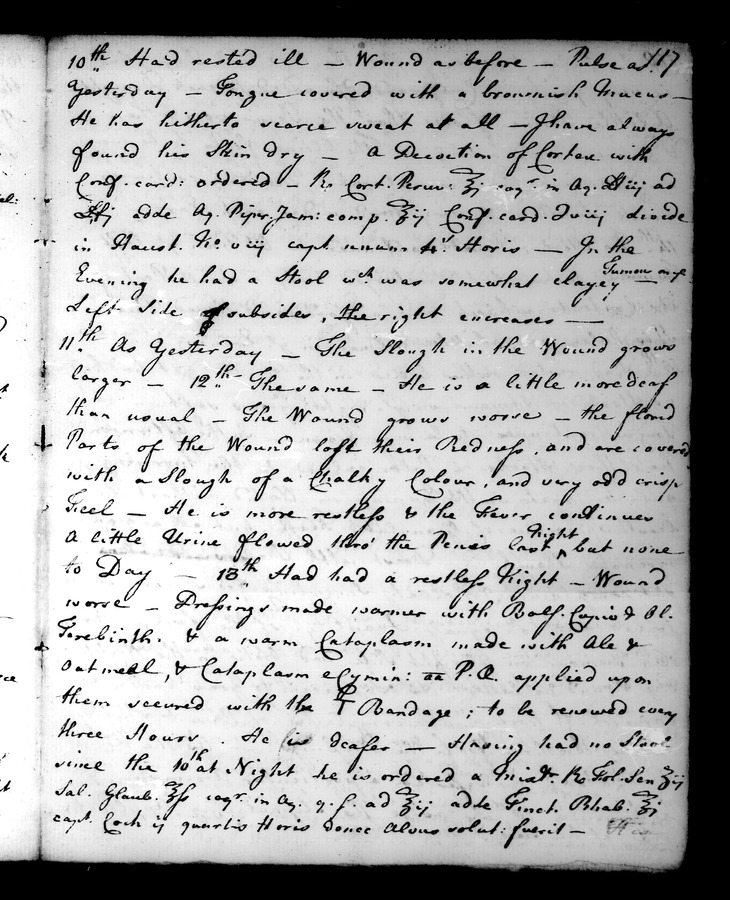 117
10th Had rested ill — Wound as before — Pulse as
Yesterday — Tongue covered with a brownish Mucus —
He has hitherto scarce sweat at all — I have always
found his Skin dry — A Decoction of Cortex with
Conf. card: ordered — Rx Cort. Peruv: ℥j coqr. in Aq. ad
adde Aq. Piper. Jam: comp. ℥ij Conf. card. ʒviij divide
in Haust. No. viij capt. unum 4s. Horis — In the
Evening he had a Stool wch was somewhat clayey — Tumour on ye
Left Side subsides, the right encreases —
11th As Yesterday — The Slough in the Wound grows
larger — 12th The same — He is a little more deaf
than usual — The Wound grows worse — the florid
Parts of the Wound lost their Redness, and are covered
with a Slough of a Chalky Colour, and very odd crisp
Feel — He is more restless & the Fever continues
A little Urine flowed thro' the Penis last Night but none
to Day — 13th Had had a restless Night — Wound
worse — Dressings made warmer with Bals. Copiv & Ol.
Terebinth. & a warm Cataplasm made with Ale &
Oatmeal, & Cataplasm e Cymin: aa P. Æ. applied upon
them secured with the T Bandage; to be renewed every
three Hours. He is deafer — Having had no Stool
since the 10th at Night he is ordered a Mixtr. Rx Fol. Sen ℥ij
Sal. Glaub. ℥ss coqr. in Aq. q. s. ad ℥ij adde Tinct. Rhab. ℥j
capt. Coch ij quartis Horis donec Alvus solut: fuerit —